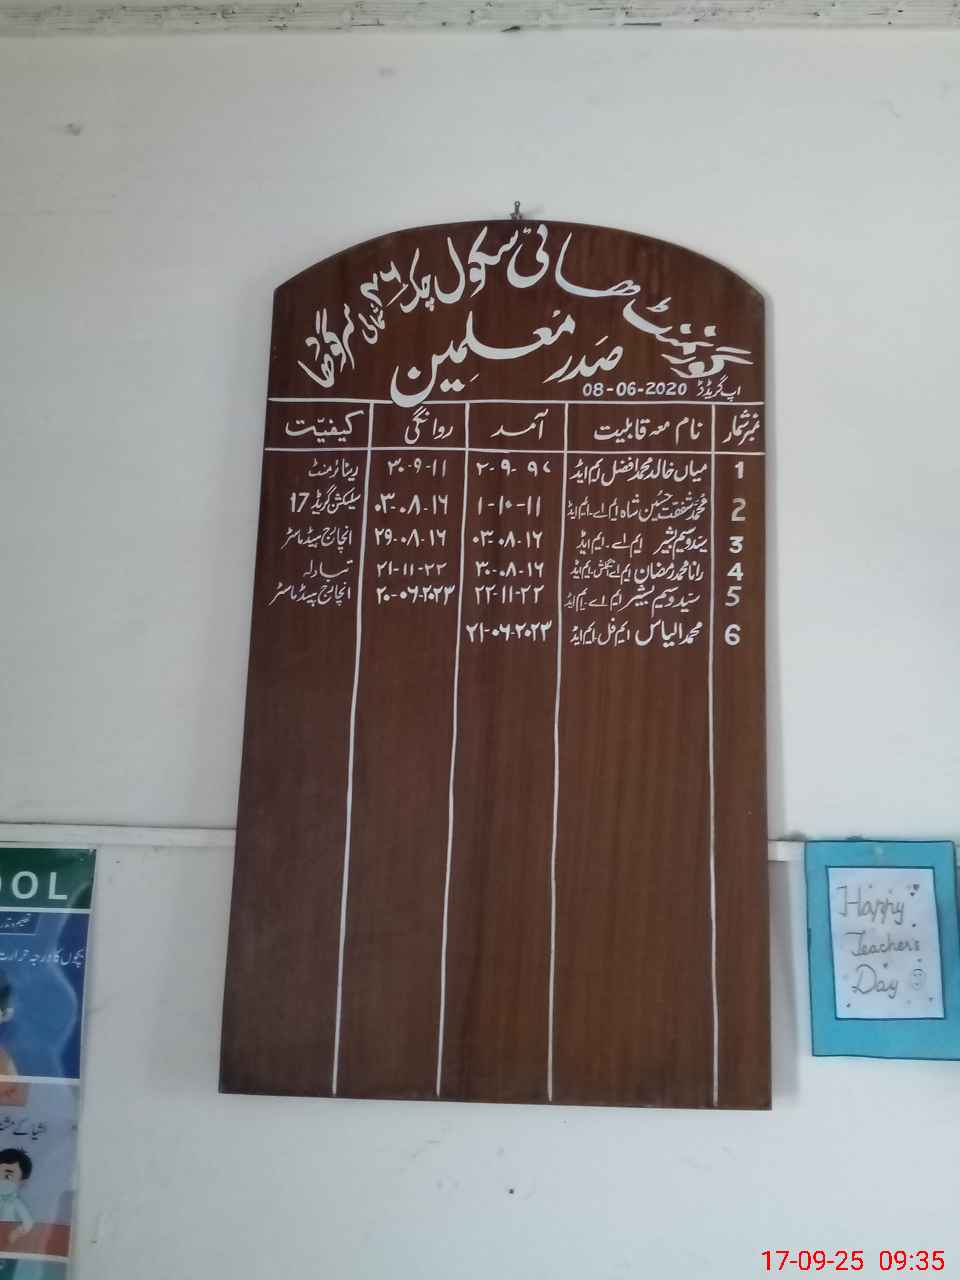 گورنمنٹ ہائی سکول چک ۴۶ شمالی سرگودھا
صدر معلمین
اپ گریڈڈ 08-06-2020
نمبر شمار نام معہ قابلیت آمد روانگی کیفیّت
1 میاں خالد محمد افضل ایم ایڈ ۲-۹-۹۷ ۳۰-۹-۱۱ ریٹائرمنٹ
2 محمد شفقت حسین شاہ ایم اے۔ ایم ایڈ ۱-۱۰-۱۱ ۰۳-۰۸-۱۶ سلیکشن گریڈ 17
3 سید وسیم بشیر ایم اے۔ ایم ایڈ ۰۳-۰۸-۱۶ ۲۹-۰۸-۱۶ انچارج ہیڈ ماسٹر
4 رانا محمد رمضان ایم اے انگلش۔ ایم ایڈ ۳۰-۰۸-۱۶ ۲۱-۱۱-۲۲ تبادلہ
5 سید وسیم بشیر ایم اے۔ ایم ایڈ ۲۲-۱۱-۲۲ ۲۰-۰۶-۲۰۲۳ انچارج ہیڈ ماسٹر
6 محمد الیاس ایم فل۔ ایم ایڈ ۲۱-۰۶-۲۰۲۳
OOL
بچوں کا درجہ حرارت
اشیا کے
Happy
Teacher's
Day
17-09-25 09:35